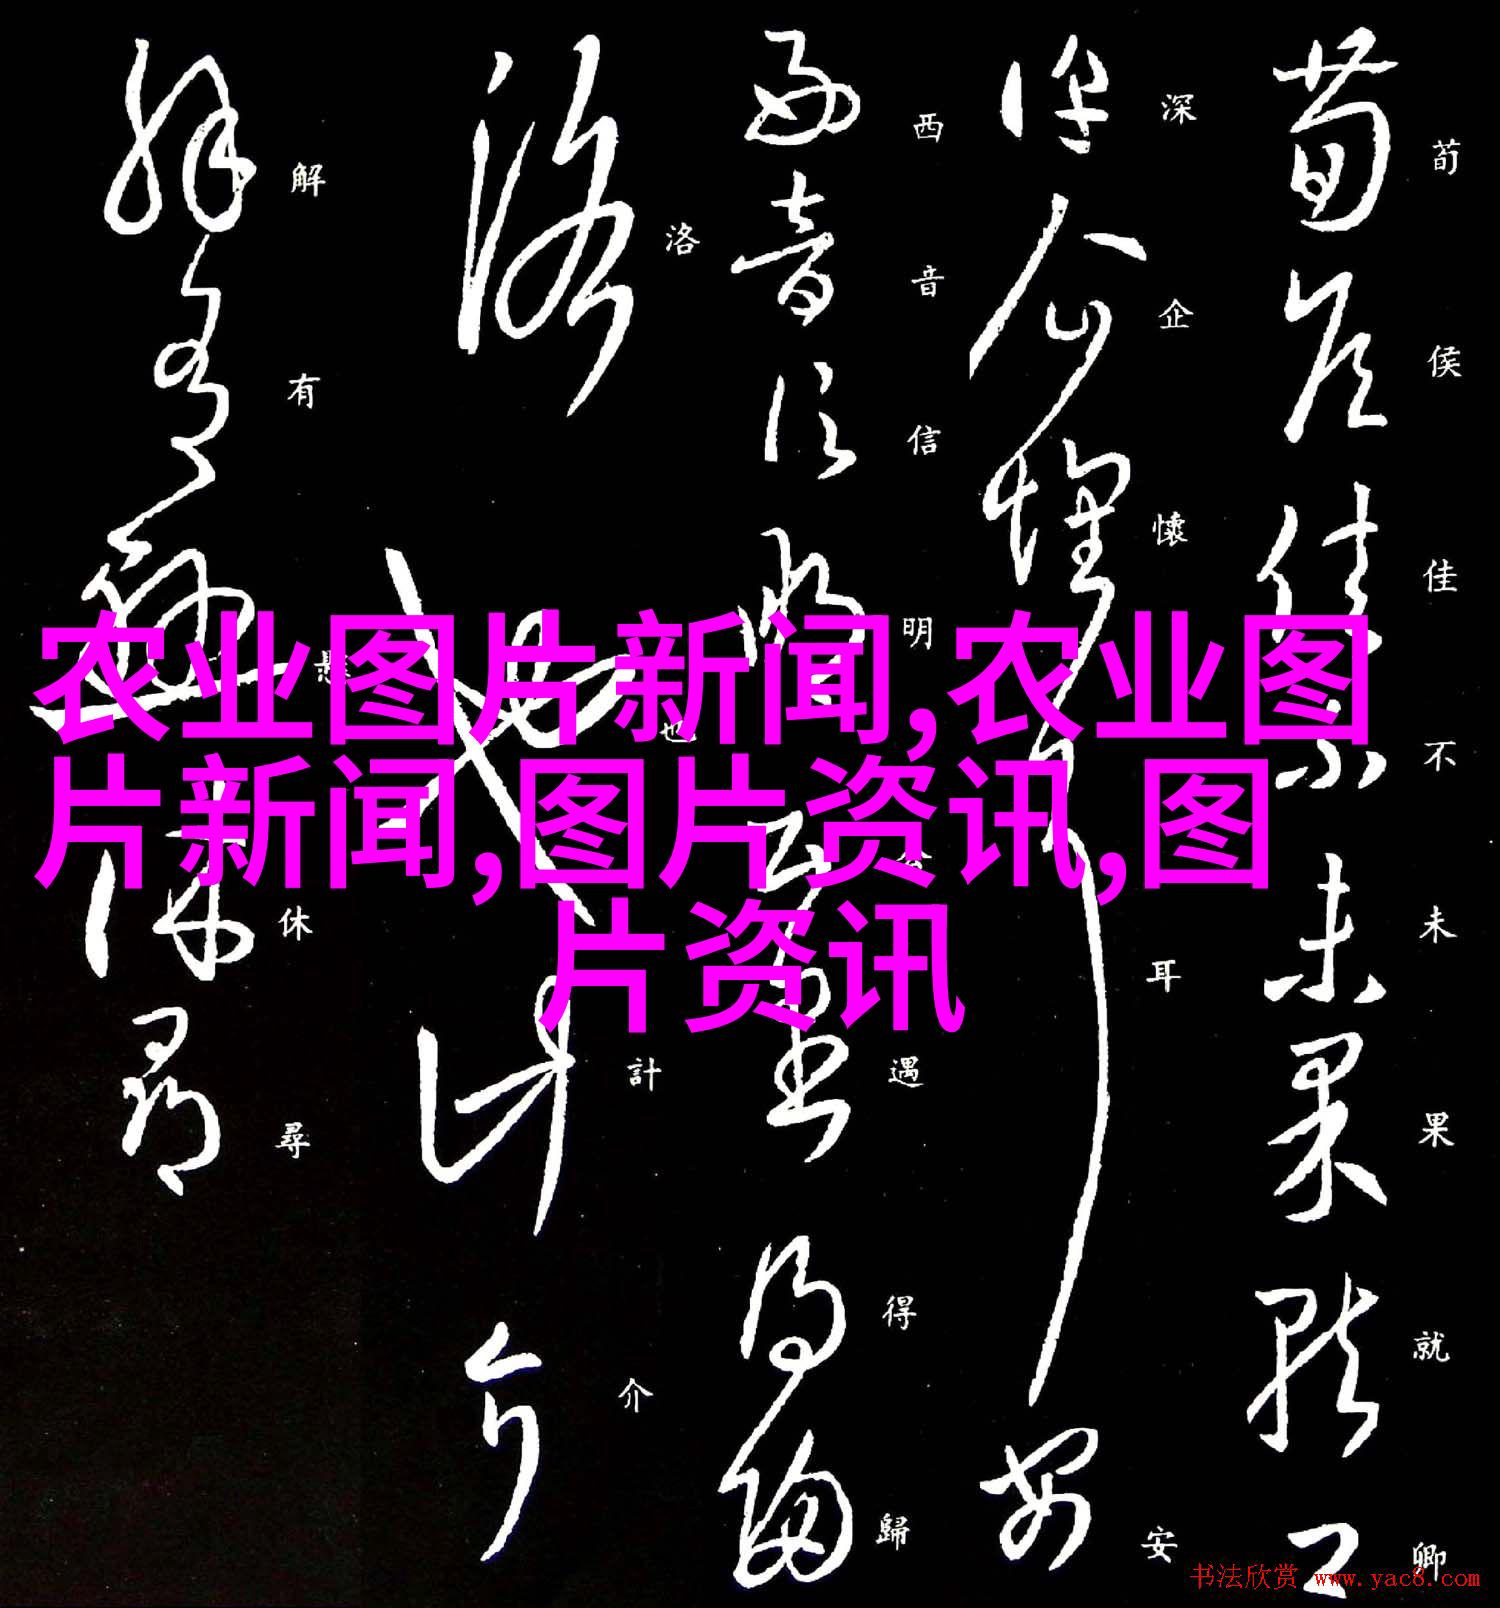 农业图片新闻,农业图
片新闻,图片资讯,图
片资讯
荀侯佳不未果就卿
深企懷耳安
西音信明遇得歸
洛也計介
解有懸休尋
书法欣赏 www.yac8.com